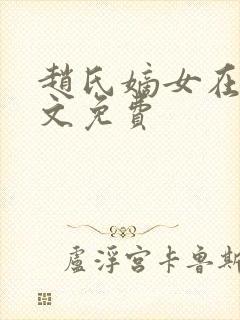 趙氏嫡女在
文免費
盧浮宮卡魯斯